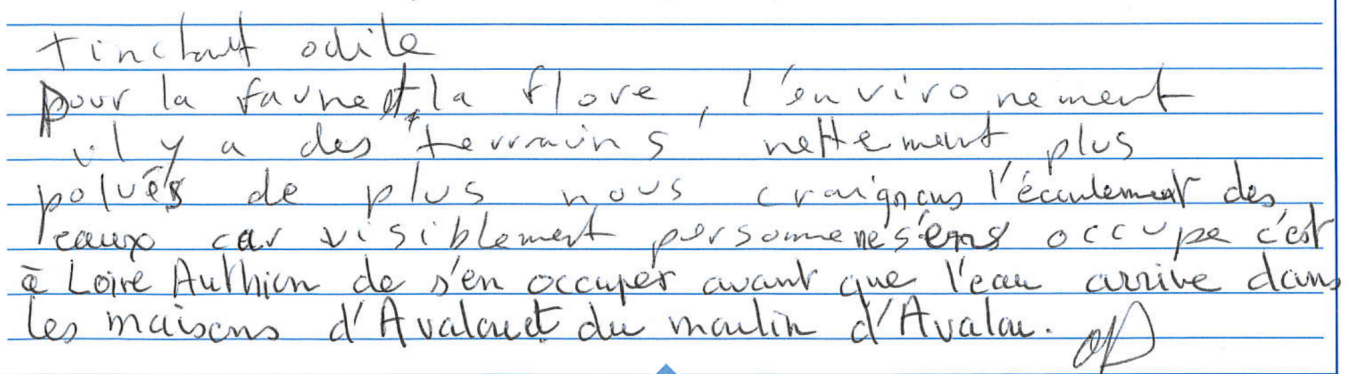 tinchaut odile
pour la faune et la flore, l'environement
il y a des terrains nettement plus
polués de plus nous craignons l'écoulement des
eaux car visiblement personne ne s'ens occupe c'est
à Loire Authion de s'en occuper avant que l'eau arrive dans
les maisons d'Avalou et du moulin d'Avalou.